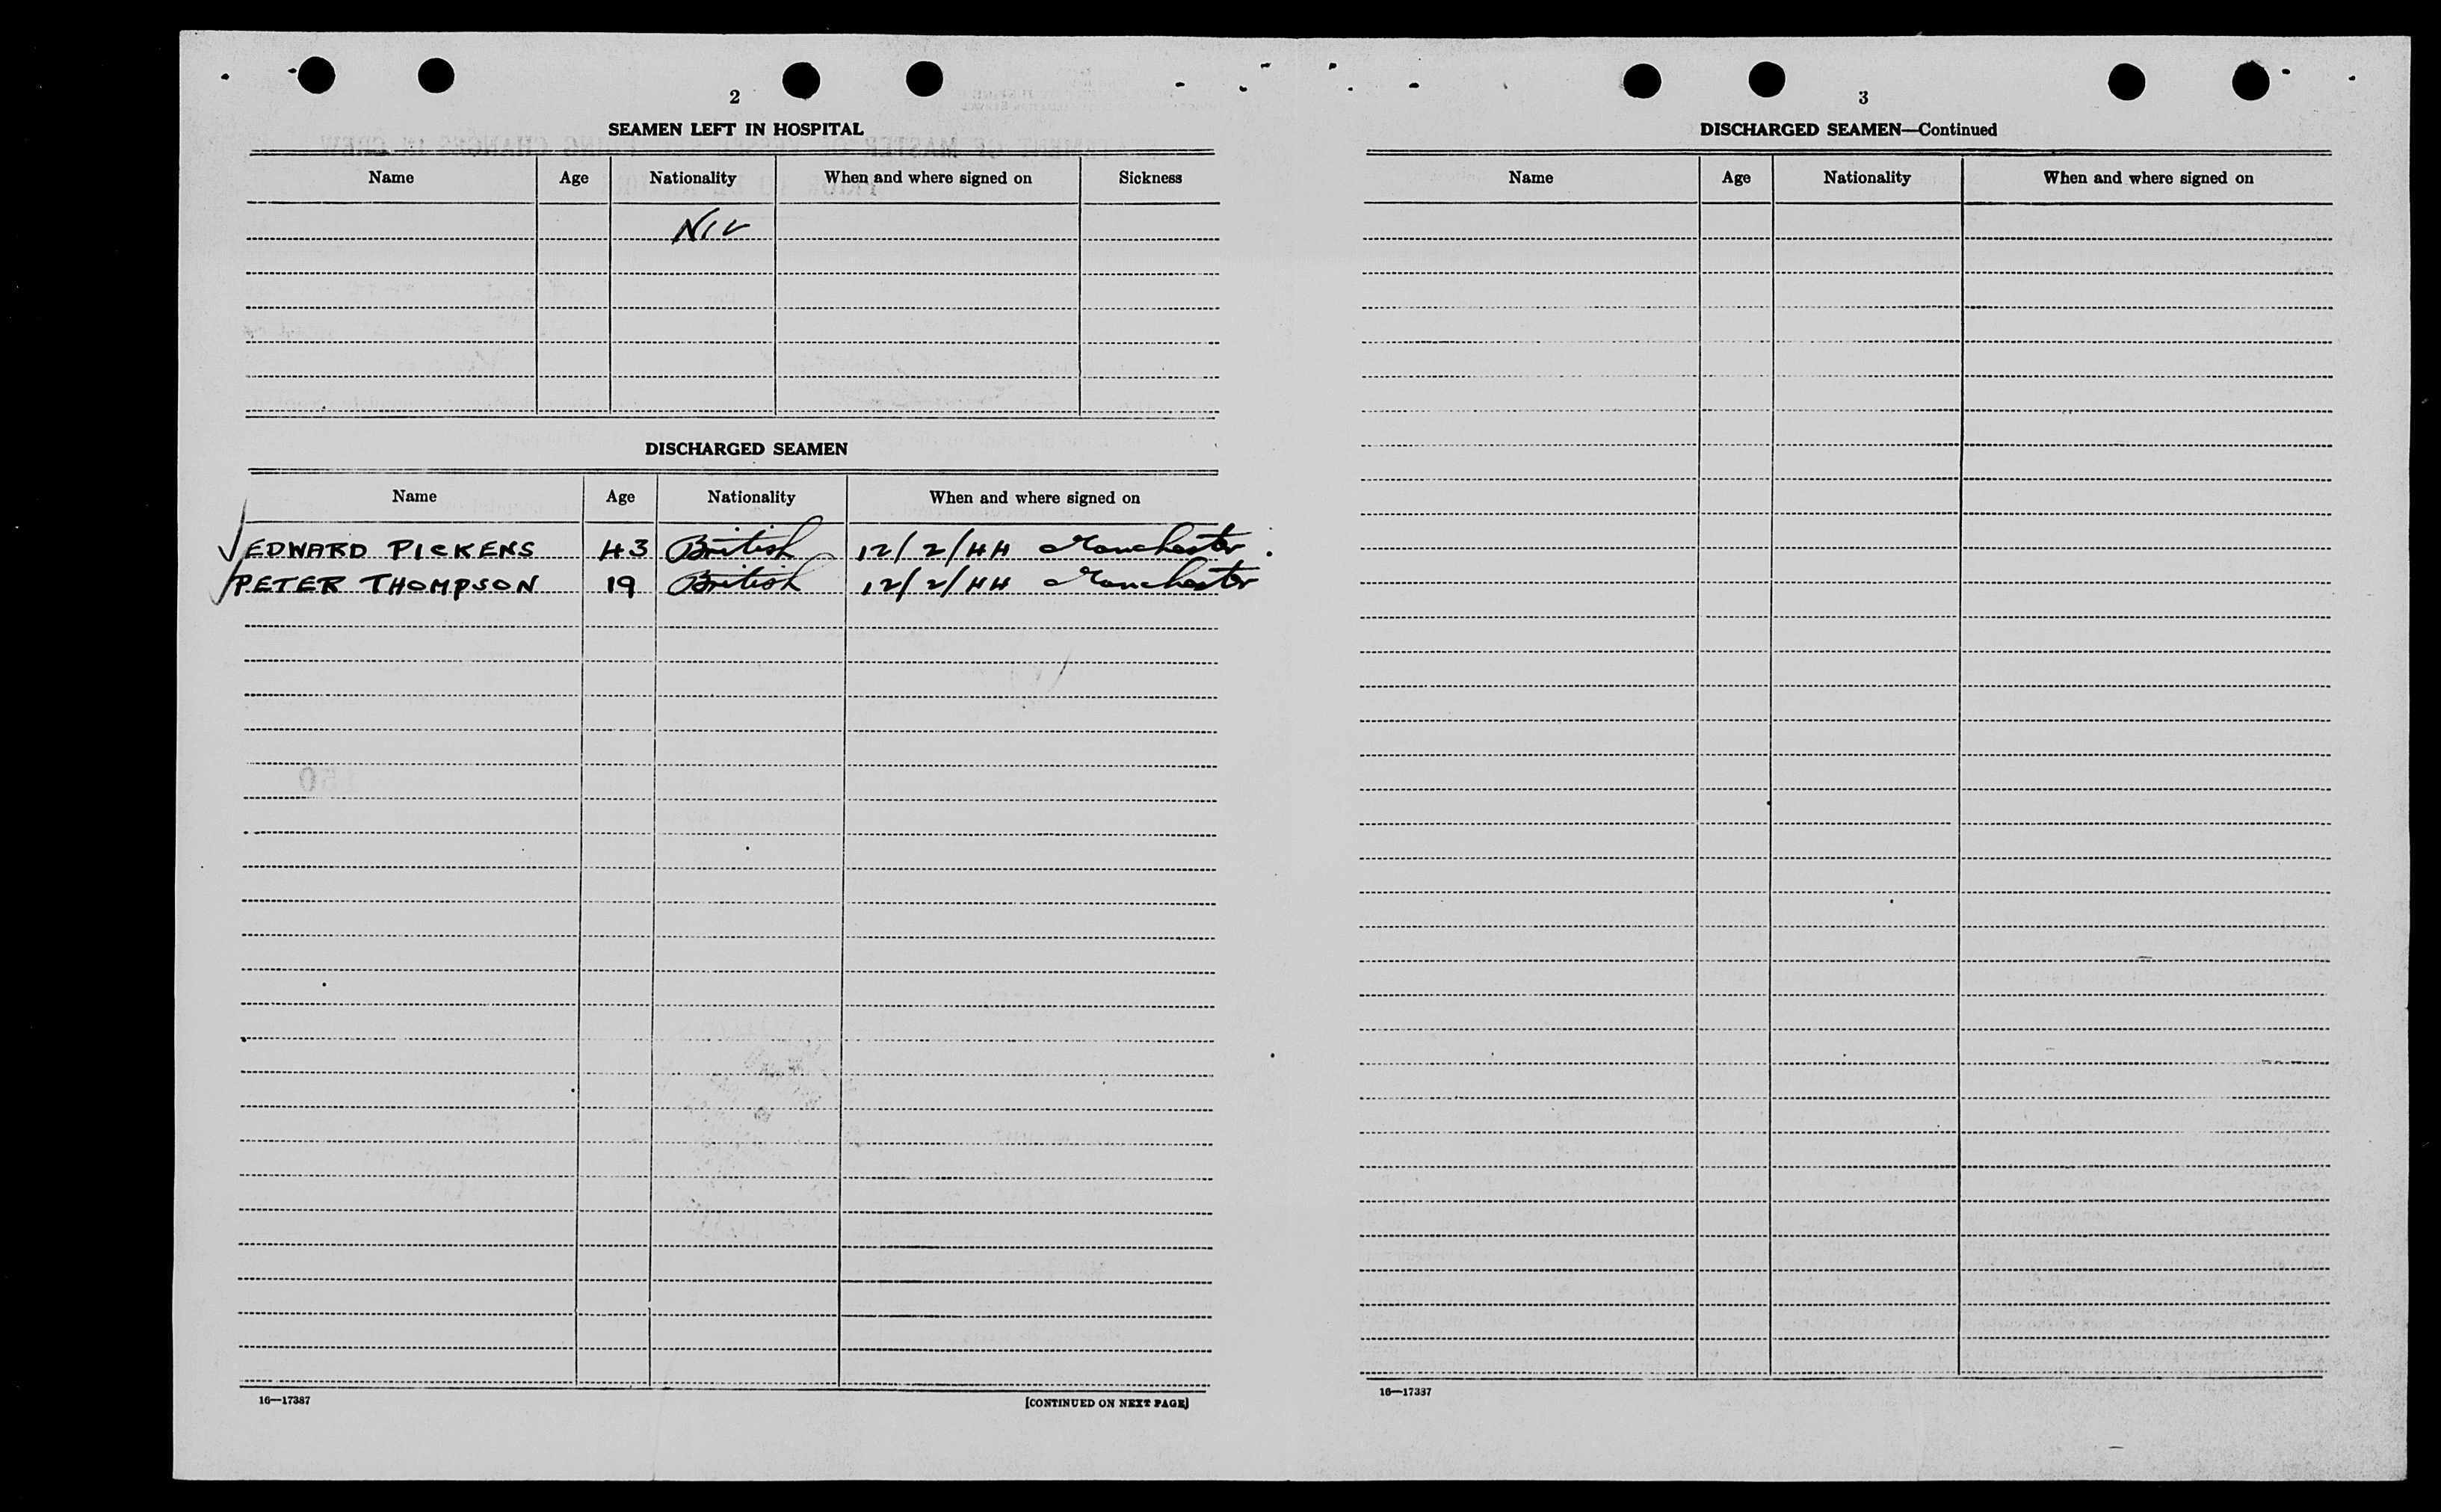 2
SEAMEN LEFT IN HOSPITAL
Name Age Nationality When and where signed on Sickness
NIL
DISCHARGED SEAMEN
Name Age Nationality When and where signed on
EDWARD PICKENS 43 British 12/2/44 Manchester.
PETER THOMPSON 19 British 12/2/44 Manchester
16—17387 [CONTINUED ON NEXT PAGE]
3
DISCHARGED SEAMEN—Continued
Name Age Nationality When and where signed on
16—17387